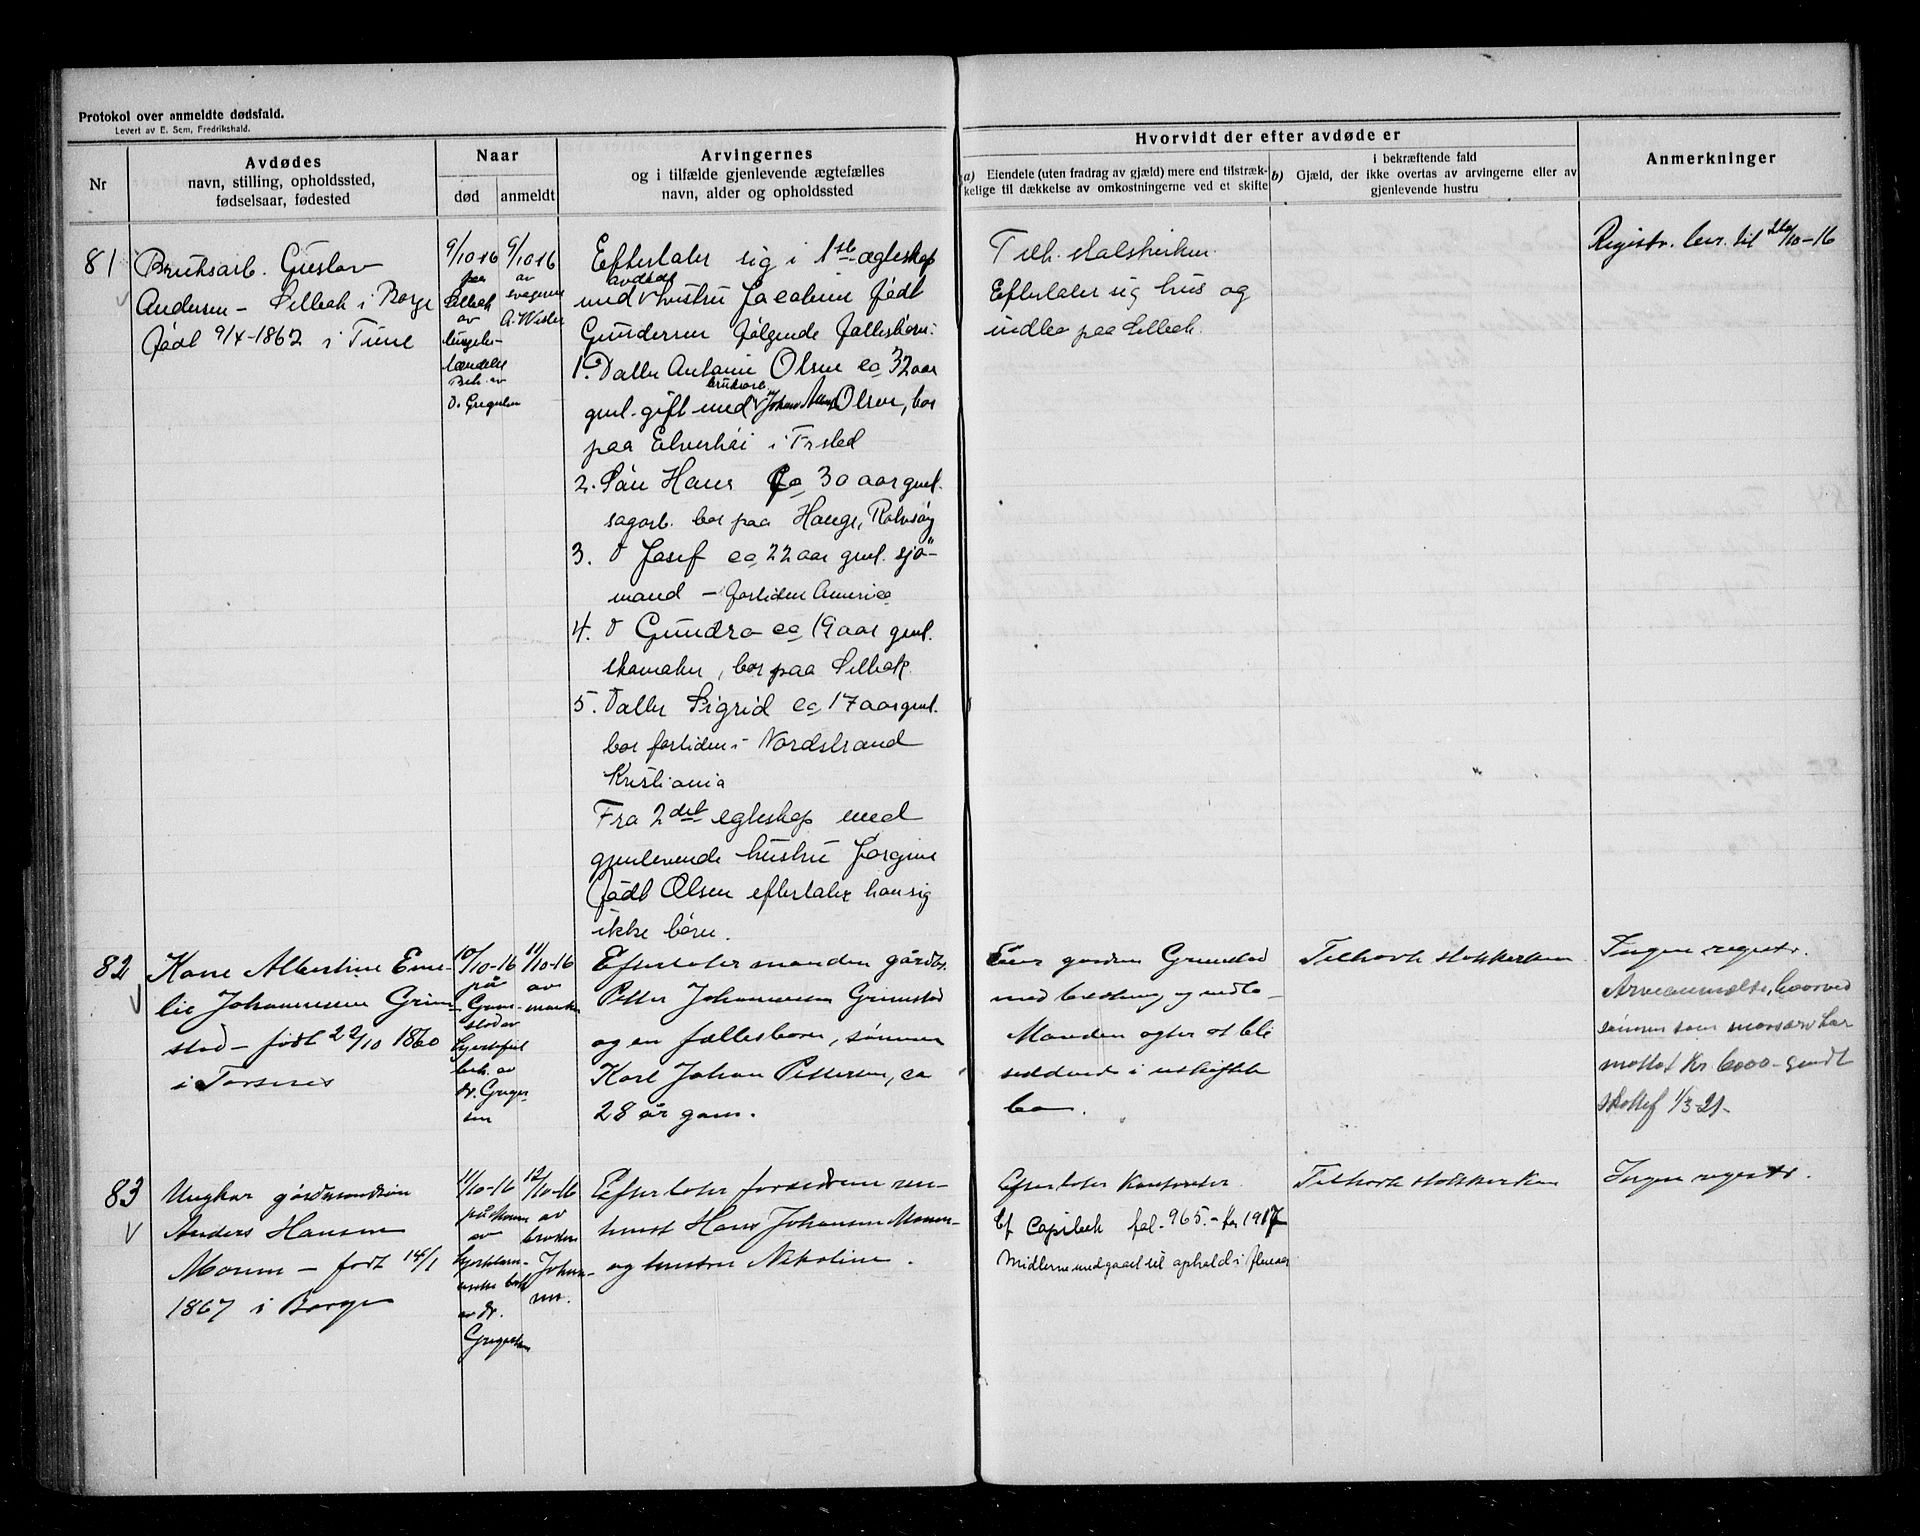 Protokol over anmeldte dødsfald.
Levert av E. Sem, Fredrikshald.
Nr
Avdødes
navn, stilling, opholdssted,
fødselsaar, fødested
Naar
død
anmeldt
Arvingernes
og i tilfælde gjenlevende ægtefælles
navn, alder og opholdssted
Hvorvidt der efter avdøde er
a) Eiendele (uten fradrag av gjæld) mere end tilstræk-
kelige til dækkelse av omkostningerne ved et skifte
b)
i bekræftende fald
Gjæld, der ikke overtas av arvingerne eller av
gjenlevende hustru
Anmerkninger
81
Bruksarb. Gustav
Andersen - Sellebak i Borge
født 9/4-1862 i Tune
9/10 16
paa
Sellebak
av
lungebe-
tændelse
Beh. av
D. Gregersen
9/10 16
av
svogeren
A. Wister
Efterlater sig i 1ste ægteskap
med avdøde hustru Jacobine født
Gundersen følgende fællesbørn:
1. Datter Antonie Olsen ca 32 aar
gml. gift med bruksarb. Johan Olsen, bor
paa Elverhøi i Fr.sted
2. Søn Hans ca 30 aar gml.
sagarb. bor paa Hauge, Rolvsøy
3. " Josef ca 22 aar gml. sjø-
mand - fortiden America
4. " Gundro ca 19 aar gml.
skomaker, bor paa Sellebak
5. Datter Sigrid ca 17 aar gml.
bor fortiden i Nordstrand
Kristiania
Fra 2det egteskap med
gjenlevende hustru Jørgine
født Olsen efterlater han sig
ikke børn.
Tilh. statskirken.
Efterlater sig hus og
indbo paa Sellebak.
Registr. ber. til 26/10-16
82
Kone Albertine Eme-
lie Johannessen Grim-
stad - født 22/10 1860
i Torsnes
10/10-16
på
Grim-
stad av
hjertefeil
beh. av
dr. Greger-
sen
11/10-16
av
manden
Efterlater manden gårdb.
Petter Johannessen Grimstad
og en fællesbarn, sønnen
Karl Johan Pettersen, ca
28 år gam.
Eier gården Grimstad
med besetning og indbo -
Manden agter at bli
siddende i uskiftet
bo.
Tilhørte statskirken
Ingen registr.
Arveanmeldse, hvorved
sønnen som morsarv har
mottat Kr. 6000 - sendt
skattef 1/3-21-
83
Ungkar gårdmandsøn
Anders Hansen
Moum - født 14/1
1867 i Borge
11/10-16
på Moum
av
hjertelam-
melse beh.
av dr.
Gregersen
12/10-16
av
broderen
Johan-
sen.
Efterlater forældrene sen-
hust Hans Johansen Moum-
og hustru Nikoline.
Efterlater kontanter.
Ef. Capibeck fol. 965. - for 1917
Midlerne medgaaet til ophold i
Tilhørte statskirken
Ingen registr.